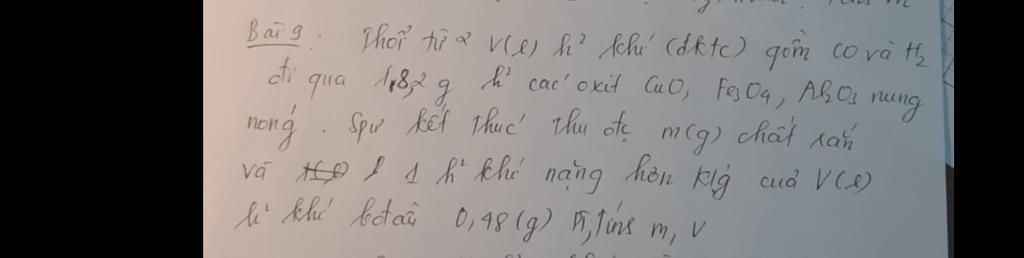 Bài 9. Thổi từ² V(l) h² khí (đktc) gồm CO và H₂
đi qua 1,8,2 g h² các oxit CuO, Fe₃O₄, Al₂O₃ nung
nóng. Spư kết thúc thu đc m(g) chất rắn
và 1 h² khí nặng hơn klg của V(l)
h² khí bđầu 0,48(g), tính m, V